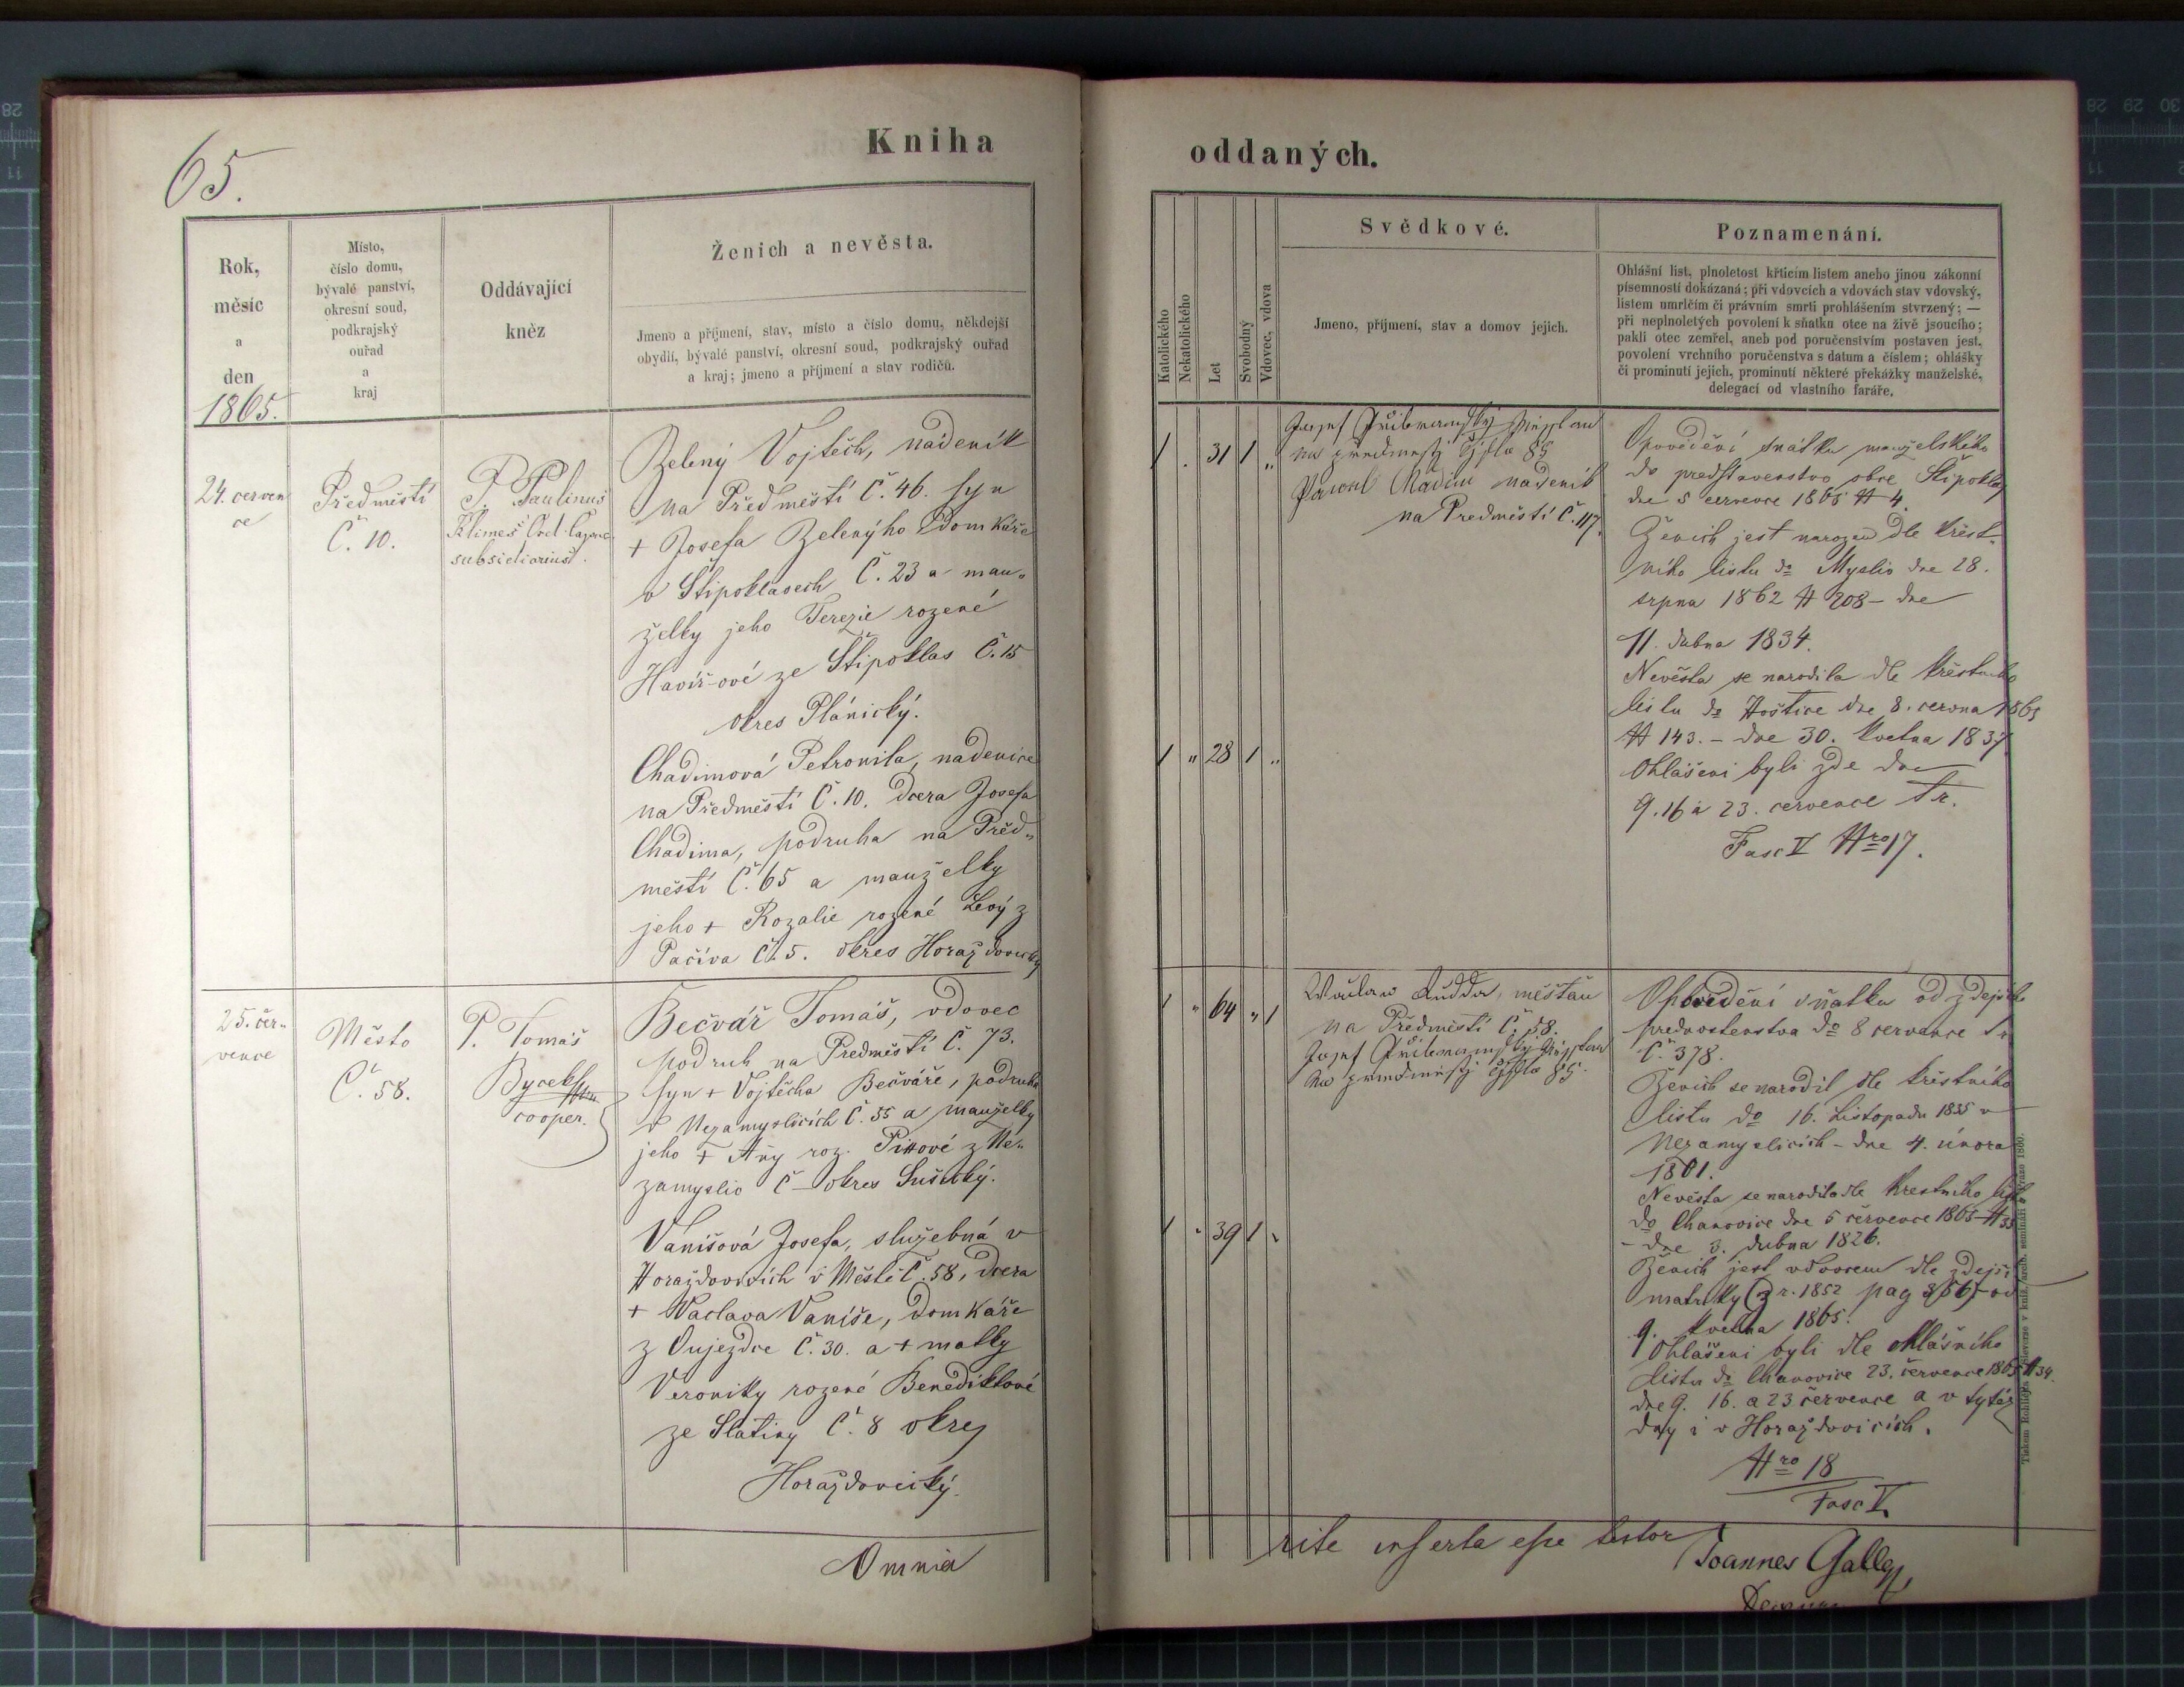 65.
Kniha
oddaných.
Rok,
měsíc
a
den
1865.
Místo,
číslo domu,
bývalé panství,
okresní soud,
podkrajský
ouřad
a
kraj
Oddávající
kněz
Ženich a nevěsta.
Jmeno a příjmení, stav, místo a číslo domu, někdejší
obydlí, bývalé panství, okresní soud, podkrajský ouřad
a kraj; jmeno a příjmení a stav rodičů.
Katolického
Nekatolického
Let
Svobodný
Vdovec, vdova
Svědkové.
Jmeno, příjmení, stav a domov jejich.
Poznamenání.
Ohlášní list, plnoletost křticím listem anebo jinou zákonní
písemností dokázaná; při vdovcích a vdovách stav vdovský,
listem umrlčím či právním smrti prohlášením stvrzený; —
při neplnoletých povolení k sňatku otce na živě jsoucího;
pakli otec zemřel, aneb pod poručenstvím postaven jest,
povolení vrchního poručenstva s datum a číslem; ohlášky
či prominutí jejich, prominutí některé překážky manželské,
delegací od vlastního faráře.
24. červen
ce
Předměstí
Č. 10.
P. Paulinus
Klimeš Ord.
subsidiarius.
Zelený Vojtěch, nádeník
na Předměstí Č. 46. syn
+ Josefa Zelenýho domkáře
v Štipoklasech Č. 23 a man-
želky jeho Terezie rozené
Havíř-ové ze Štipoklas Č. 15
okres Plánický.
Chadimová Petronila, nadenice
na Předměstí Č. 10. dcera Josefa
Chadima, podruha na Před-
městí Č. 65 a manželky
jeho + Rozalie rozené Levý z
Pačiva Č. 5. okres Horažďovický
1 31 1 "
1 " 28 1 "
Josef
na předměstj čjslo 85
nádeník
na Předměstí Č. 117.
Opovědění snátku manželského
do představenstva obce Štipoklas
dne 5 července 1865 № 4.
Ženich jest narozen dle křest-
ního listu do Myslív dne 28.
srpna 1862 № 208 – dne
11. dubna 1834.
Nevěsta se narodila dle křestního
listu do Hoštice dne 8. června 1865
№ 143. – dne 30. května 1837
Ohlášeni byli zde dne
9. 16 a 23. července t. r.
Fasc V Nro 17.
25. čer-
vence
Město
Č. 58.
P. Tomáš
Bycek
cooper.
Bečvář Tomáš, vdovec
podruh na Předměstí Č. 73.
syn + Vojtěcha Bečváře, podruha
v Nezamyslicích Č. 55 a manželky
jeho + Any roz. z Ne-
zamyslic Č – okres Sušický.
Vanišová Josefa, služebná v
Horažďovicích v Městě Č. 58, dcera
+ Václava Vaniše, domkáře
z Oujezdce Č. 30. a + matky
Veroniky rozené Benediktové
ze Slatiny Č. 8 okres
Horažďovický.
1 " 64 " 1
1 " 39 1 "
Václav měšťan
na Předměstí Č. 58.
Josef
na předměstj čjslo 85.
Opovědění sňatku od zdejšího
představenstva do 8 července t. r.
Č. 378.
Ženich se narodil dle křestního
listu do 16. Listopadu 1835 v
Nezamyslicích – dne 4. února
1801.
Nevěsta se narodila dle křestního listu
do Chanovice dne 5 července 1865 № 35
– dne 3. dubna 1826.
Ženich jest vdovcem dle zdejší
matriky (z r. 1852 pag od
9. května 1865.
Ohlášeni byli dle ohlášního
listu do Chanovice 23. července 1865 № 34.
dne 9. 16. a 23 července a v tytéž
dny i v Horažďovicích.
Nro 18
Fasc V.
Omnia
rite inserta esse testor
Joannes Galley,